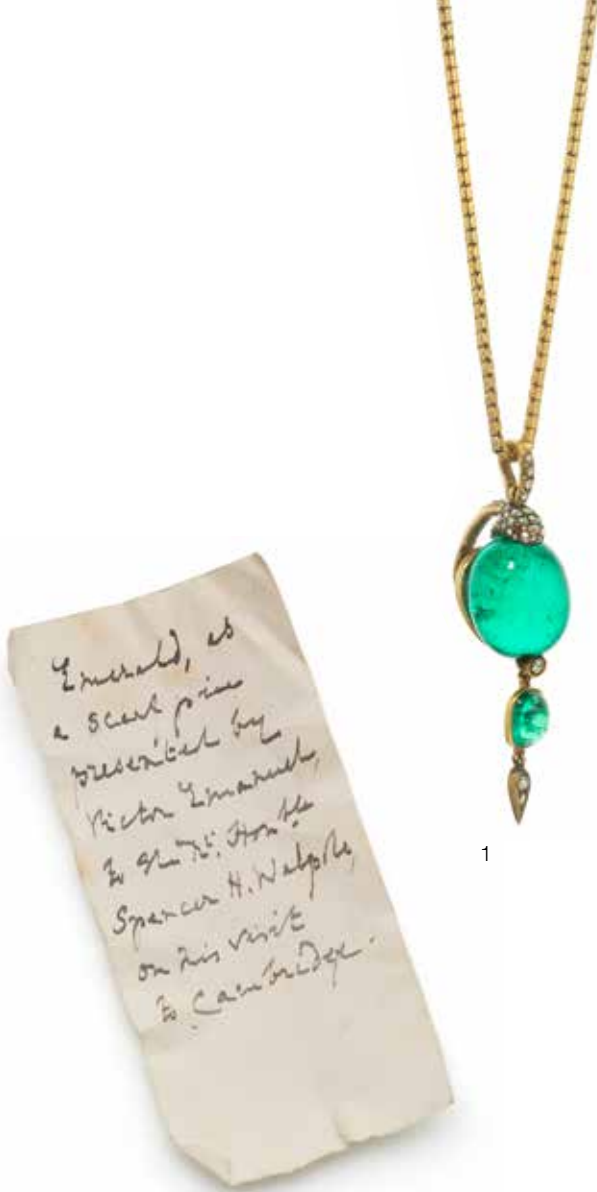 Emerald, as
a scarf pin
presented by
Victor Emanuel,
to the Rt. Honble
Spencer H. Walpole,
on his visit
to Cambridge.
1